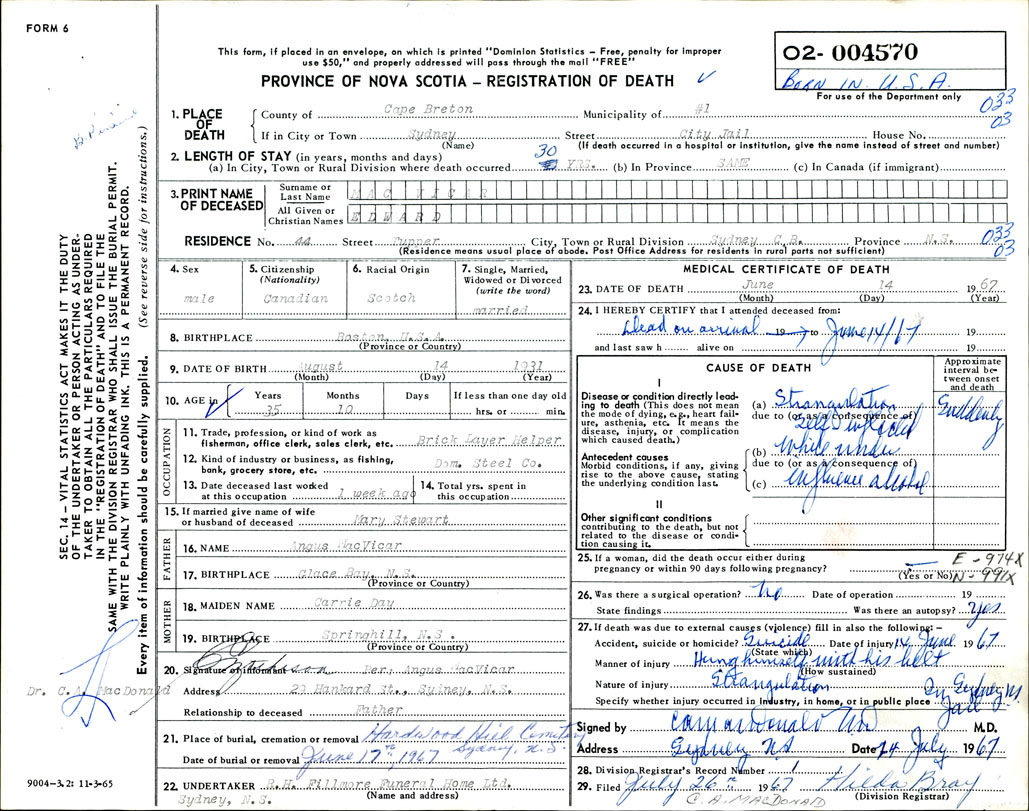 FORM 6
This form, if placed in an envelope, on which is printed "Dominion Statistics – Free, penalty for improper
use $50," and properly addressed will pass through the mail "FREE"
PROVINCE OF NOVA SCOTIA – REGISTRATION OF DEATH ✓
02- 004570
BORN IN U.S.A.
For use of the Department only
033
03
SEC. 14 – VITAL STATISTICS ACT MAKES IT THE DUTY
OF THE UNDERTAKER OR PERSON ACTING AS UNDER-
TAKER TO OBTAIN ALL THE PARTICULARS REQUIRED
IN THE "REGISTRATION OF DEATH" AND TO FILE THE
SAME WITH THE DIVISION REGISTRAR WHO SHALL ISSUE THE BURIAL PERMIT.
WRITE PLAINLY WITH UNFADING INK. THIS IS A PERMANENT RECORD.
Every item of information should be carefully supplied. (See reverse side for instructions.)
1. PLACE OF DEATH
County of Cape Breton Municipality of #1
If in City or Town Sydney Street City Jail House No.
(Name) (If death occurred in a hospital or institution, give the name instead of street and number)
2. LENGTH OF STAY (in years, months and days)
(a) In City, Town or Rural Division where death occurred 30 YRS. (b) In Province SAME (c) In Canada (if immigrant)
3. PRINT NAME OF DECEASED
Surname or Last Name MAC VICAR
All Given or Christian Names EDWARD
RESIDENCE No. 44 Street Tupper City, Town or Rural Division Sydney C.B. Province N.S.
(Residence means usual place of abode. Post Office Address for residents in rural parts not sufficient)
033
03
4. Sex
male
5. Citizenship
(Nationality)
Canadian
6. Racial Origin
Scotch
7. Single, Married,
Widowed or Divorced
(write the word)
married
8. BIRTHPLACE Boston, U.S.A.
(Province or Country)
9. DATE OF BIRTH August 14 1931
(Month) (Day) (Year)
10. AGE in
Years Months Days If less than one day old
35 10 hrs. or min.
OCCUPATION
11. Trade, profession, or kind of work as
fisherman, office clerk, sales clerk, etc. Brick Layer Helper
12. Kind of industry or business, as fishing,
bank, grocery store, etc. Dom. Steel Co.
13. Date deceased last worked
at this occupation 1 week ago
14. Total yrs. spent in
this occupation
15. If married give name of wife
or husband of deceased Mary Stewart
FATHER
16. NAME Angus MacVicar
17. BIRTHPLACE Glace Bay, N.S.
(Province or Country)
MOTHER
18. MAIDEN NAME Carrie Day
19. BIRTHPLACE Springhill, N.S.
(Province or Country)
20. Signature of informant Per; Angus MacVicar
Dr. C. A. MacDonald
Address 29 Hankard St., Sydney, N.S.
Relationship to deceased Father
21. Place of burial, cremation or removal Hardwood Hill Cemetery
Sydney, N.S.
Date of burial or removal June 17th, 1967
22. UNDERTAKER R.H. Fillmore Funeral Home Ltd.
Sydney, N.S. (Name and address)
9004–3.2: 11-3-65
MEDICAL CERTIFICATE OF DEATH
23. DATE OF DEATH June 14 1967
(Month) (Day) (Year)
24. I HEREBY CERTIFY that I attended deceased from:
Dead on arrival 19 to June 14/67 19
and last saw h alive on 19
CAUSE OF DEATH
Approximate interval between onset and death
I
Disease or condition directly lead-
ing to death (This does not mean
the mode of dying, e.g., heart fail-
ure, asthenia, etc. It means the
disease, injury, or complication
which caused death.)
(a) Strangulation Suddenly
due to (or as a consequence of)
self inflicted
Antecedent causes
Morbid conditions, if any, giving
rise to the above cause, stating
the underlying condition last.
(b) while under
due to (or as a consequence of)
(c) influence alcohol
II
Other significant conditions
contributing to the death, but not
related to the disease or condi-
tion causing it.
25. If a woman, did the death occur either during
pregnancy or within 90 days following pregnancy?
(Yes or No)
E - 974X
N - 991X
26. Was there a surgical operation? No Date of operation 19
State findings Was there an autopsy? Yes
27. If death was due to external causes (violence) fill in also the following:–
Accident, suicide or homicide? Suicide Date of injury 14 June 1967
(State which)
Manner of injury Hung himself with his belt
(How sustained)
Nature of injury Strangulation
Specify whether injury occurred in industry, in home, or in public place In Sydney
Jail
Signed by M.D.
Address Sydney NS Date 24 July 1967
28. Division Registrar's Record Number 1
29. Filed July 26th 1967 Hilda Bray
C. A. MACDONALD (Division Registrar)